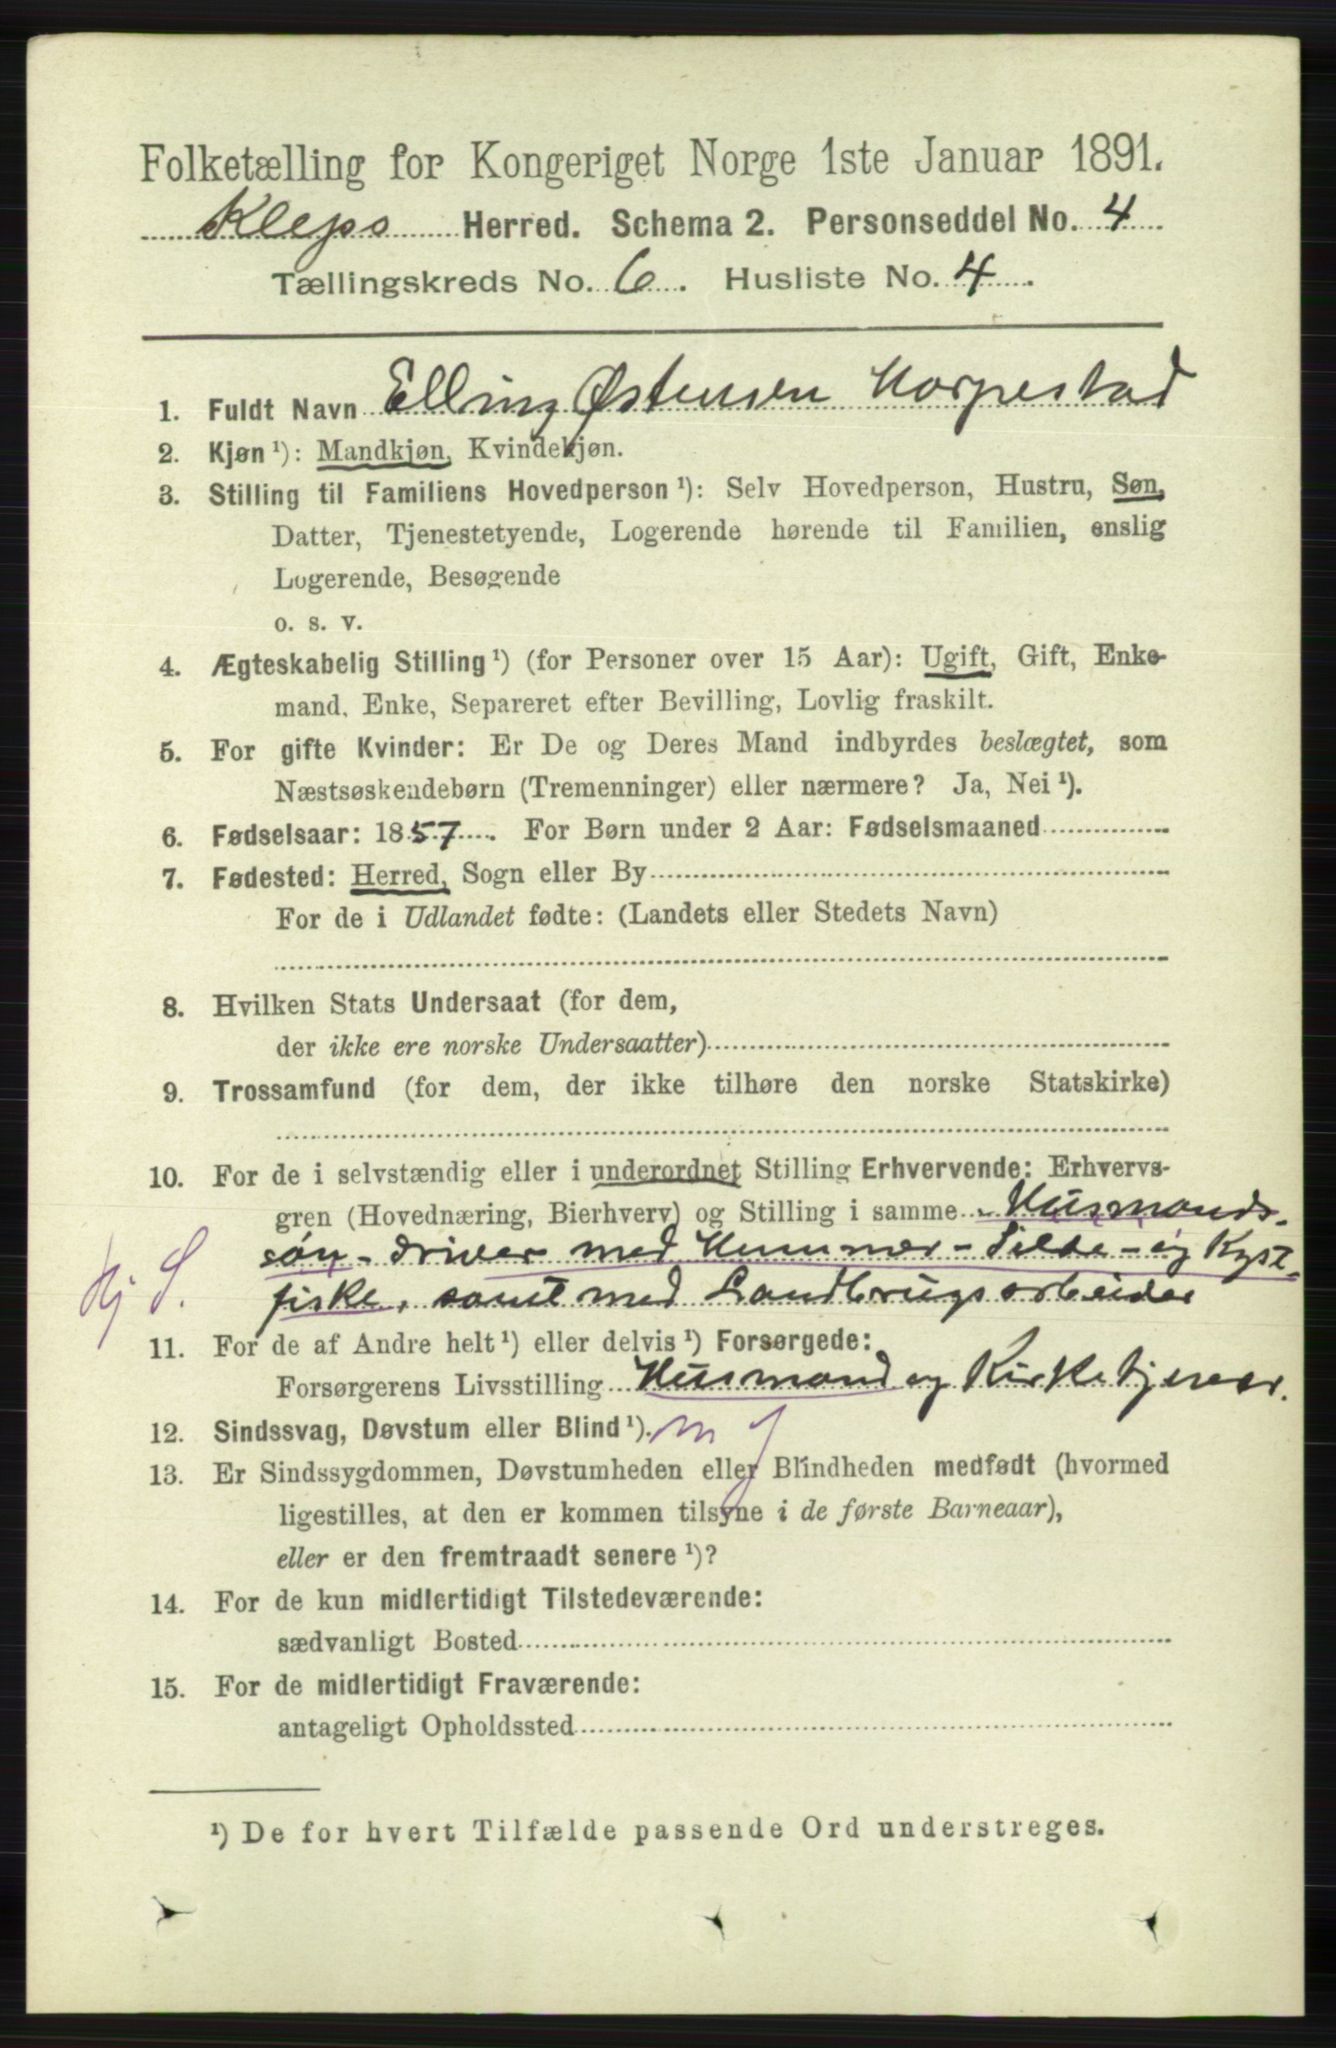 Folketælling for Kongeriget Norge 1ste Januar 1891.
Kleps Herred. Schema 2. Personseddel No. 4
Tællingskreds No. 6. Husliste No. 4.
1. Fuldt Navn Elling Østensen Horpestad
2. Kjøn ¹): Mandkjøn, Kvindekjøn.
3. Stilling til Familiens Hovedperson ¹): Selv Hovedperson, Hustru, Søn,
Datter, Tjenestetyende, Logerende hørende til Familien, enslig
Logerende, Besøgende
o. s. v.
4. Ægteskabelig Stilling ¹) (for Personer over 15 Aar): Ugift, Gift, Enke-
mand, Enke, Separeret efter Bevilling, Lovlig fraskilt.
5. For gifte Kvinder: Er De og Deres Mand indbyrdes beslægtet, som
Næstsøskendebørn (Tremenninger) eller nærmere? Ja, Nei ¹).
6. Fødselsaar: 1857. For Børn under 2 Aar: Fødselsmaaned
7. Fødested: Herred, Sogn eller By
For de i Udlandet fødte: (Landets eller Stedets Navn)
8. Hvilken Stats Undersaat (for dem,
der ikke ere norske Undersaatter)
9. Trossamfund (for dem, der ikke tilhøre den norske Statskirke)
10. For de i selvstændig eller i underordnet Stilling Erhvervende: Erhvervs-
gren (Hovednæring, Bierhverv) og Stilling i samme Husmands-
søn - driver med Hummer - Silde - og Kyst-
fiske, samt med Landbrugsarbeider
Kj S.
11. For de af Andre helt ¹) eller delvis ¹) Forsørgede:
Forsørgerens Livsstilling Husmand og Kirketjener.
12. Sindssvag, Døvstum eller Blind ¹).
13. Er Sindssygdommen, Døvstumheden eller Blindheden medfødt (hvormed
ligestilles, at den er kommen tilsyne i de første Barneaar),
eller er den fremtraadt senere ¹)?
14. For de kun midlertidigt Tilstedeværende:
sædvanligt Bosted
15. For de midlertidigt Fraværende:
antageligt Opholdssted
¹) De for hvert Tilfælde passende Ord understreges.